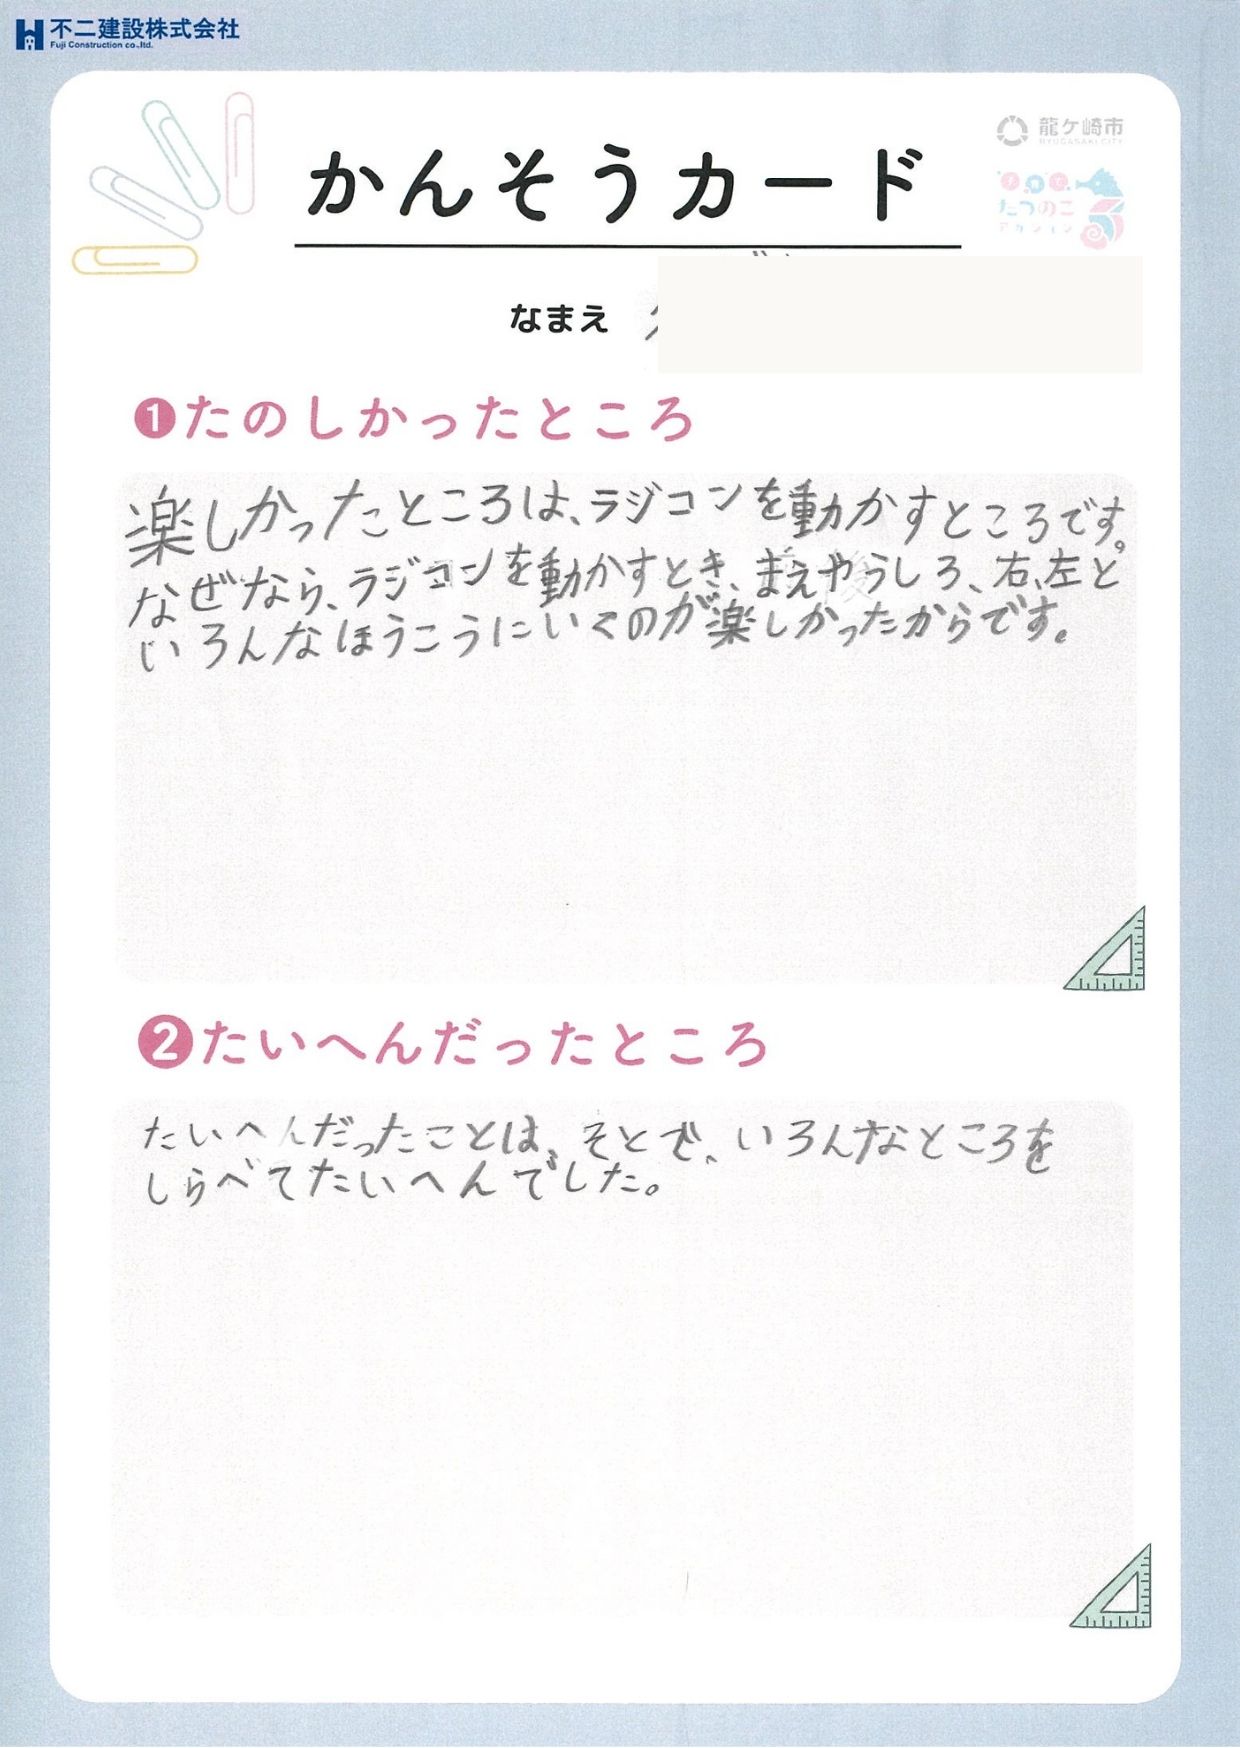 不二建設株式会社
Fuji Construction co.,ltd.
龍ケ崎市
RYUGASAKI CITY
子育て
たつのこ
アクション
かんそうカード
なまえ
❶たのしかったところ
楽しかったところは、ラジコンを動かすところです。
なぜなら、ラジコンを動かすとき、まえやうしろ、右、左と
いろんなほうこうにいくのが楽しかったからです。
❷たいへんだったところ
たいへんだったことは、そとで、いろんなところを
しらべてたいへんでした。